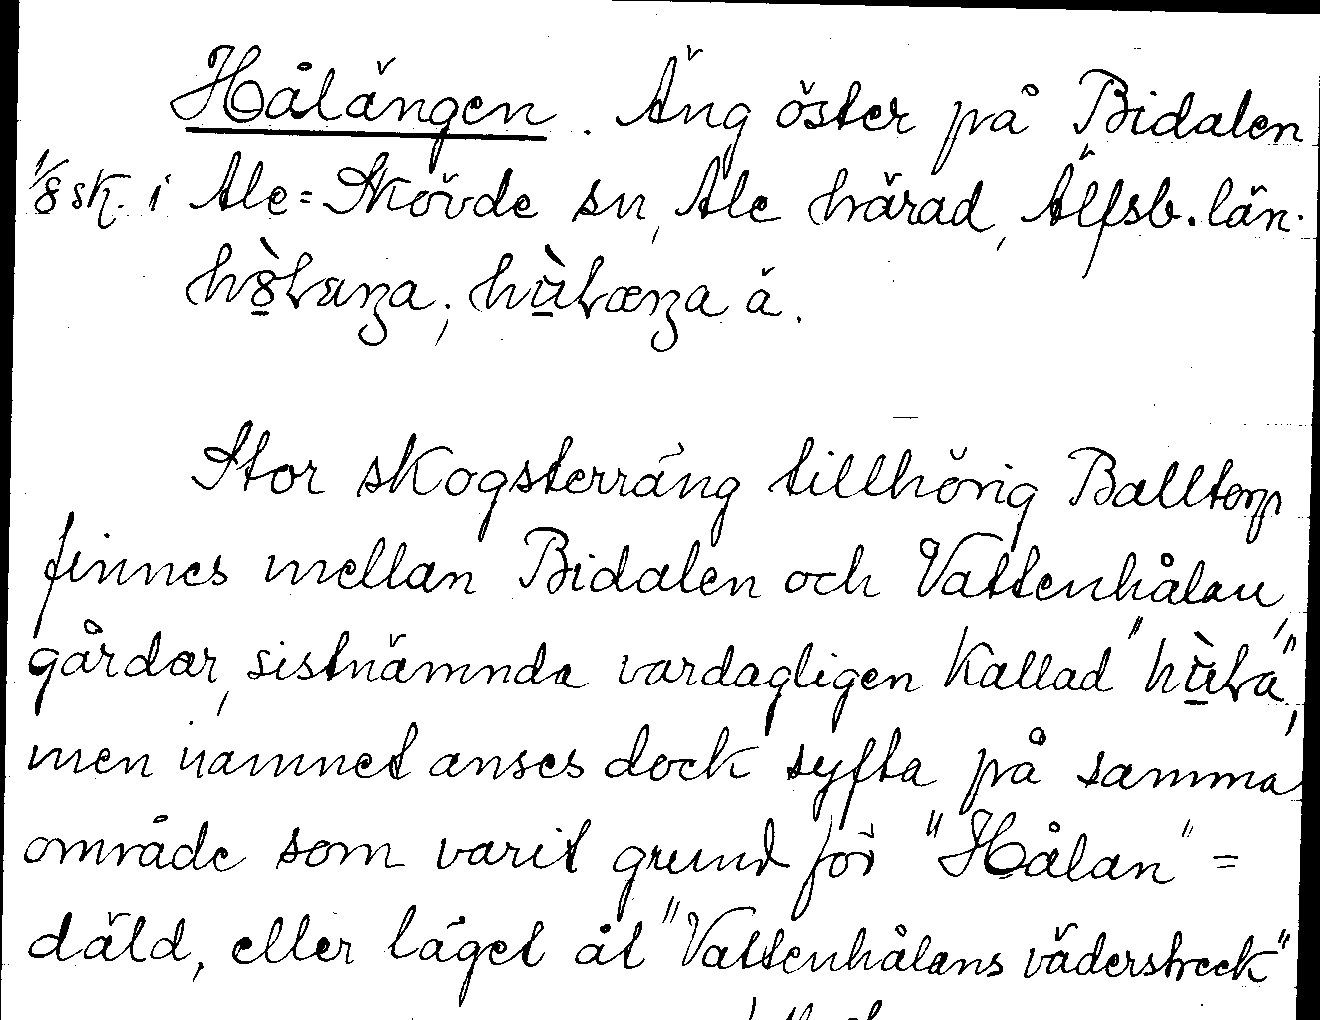 Hålängen. Äng öster på Bidalen
1/8 sk. i Ale=Skövde sn, Ale härad, Älfsb. län.
Stor skogsterräng tillhörig Balltorp
finnes mellan Bidalen och Vattenhålan,
gårdar, sistnämnda vardagligen kallad
men namnet anses dock syfta på samma
område som varit grund för "Hålan" =
däld, eller läget åt "Vattenhålans väderstreck"